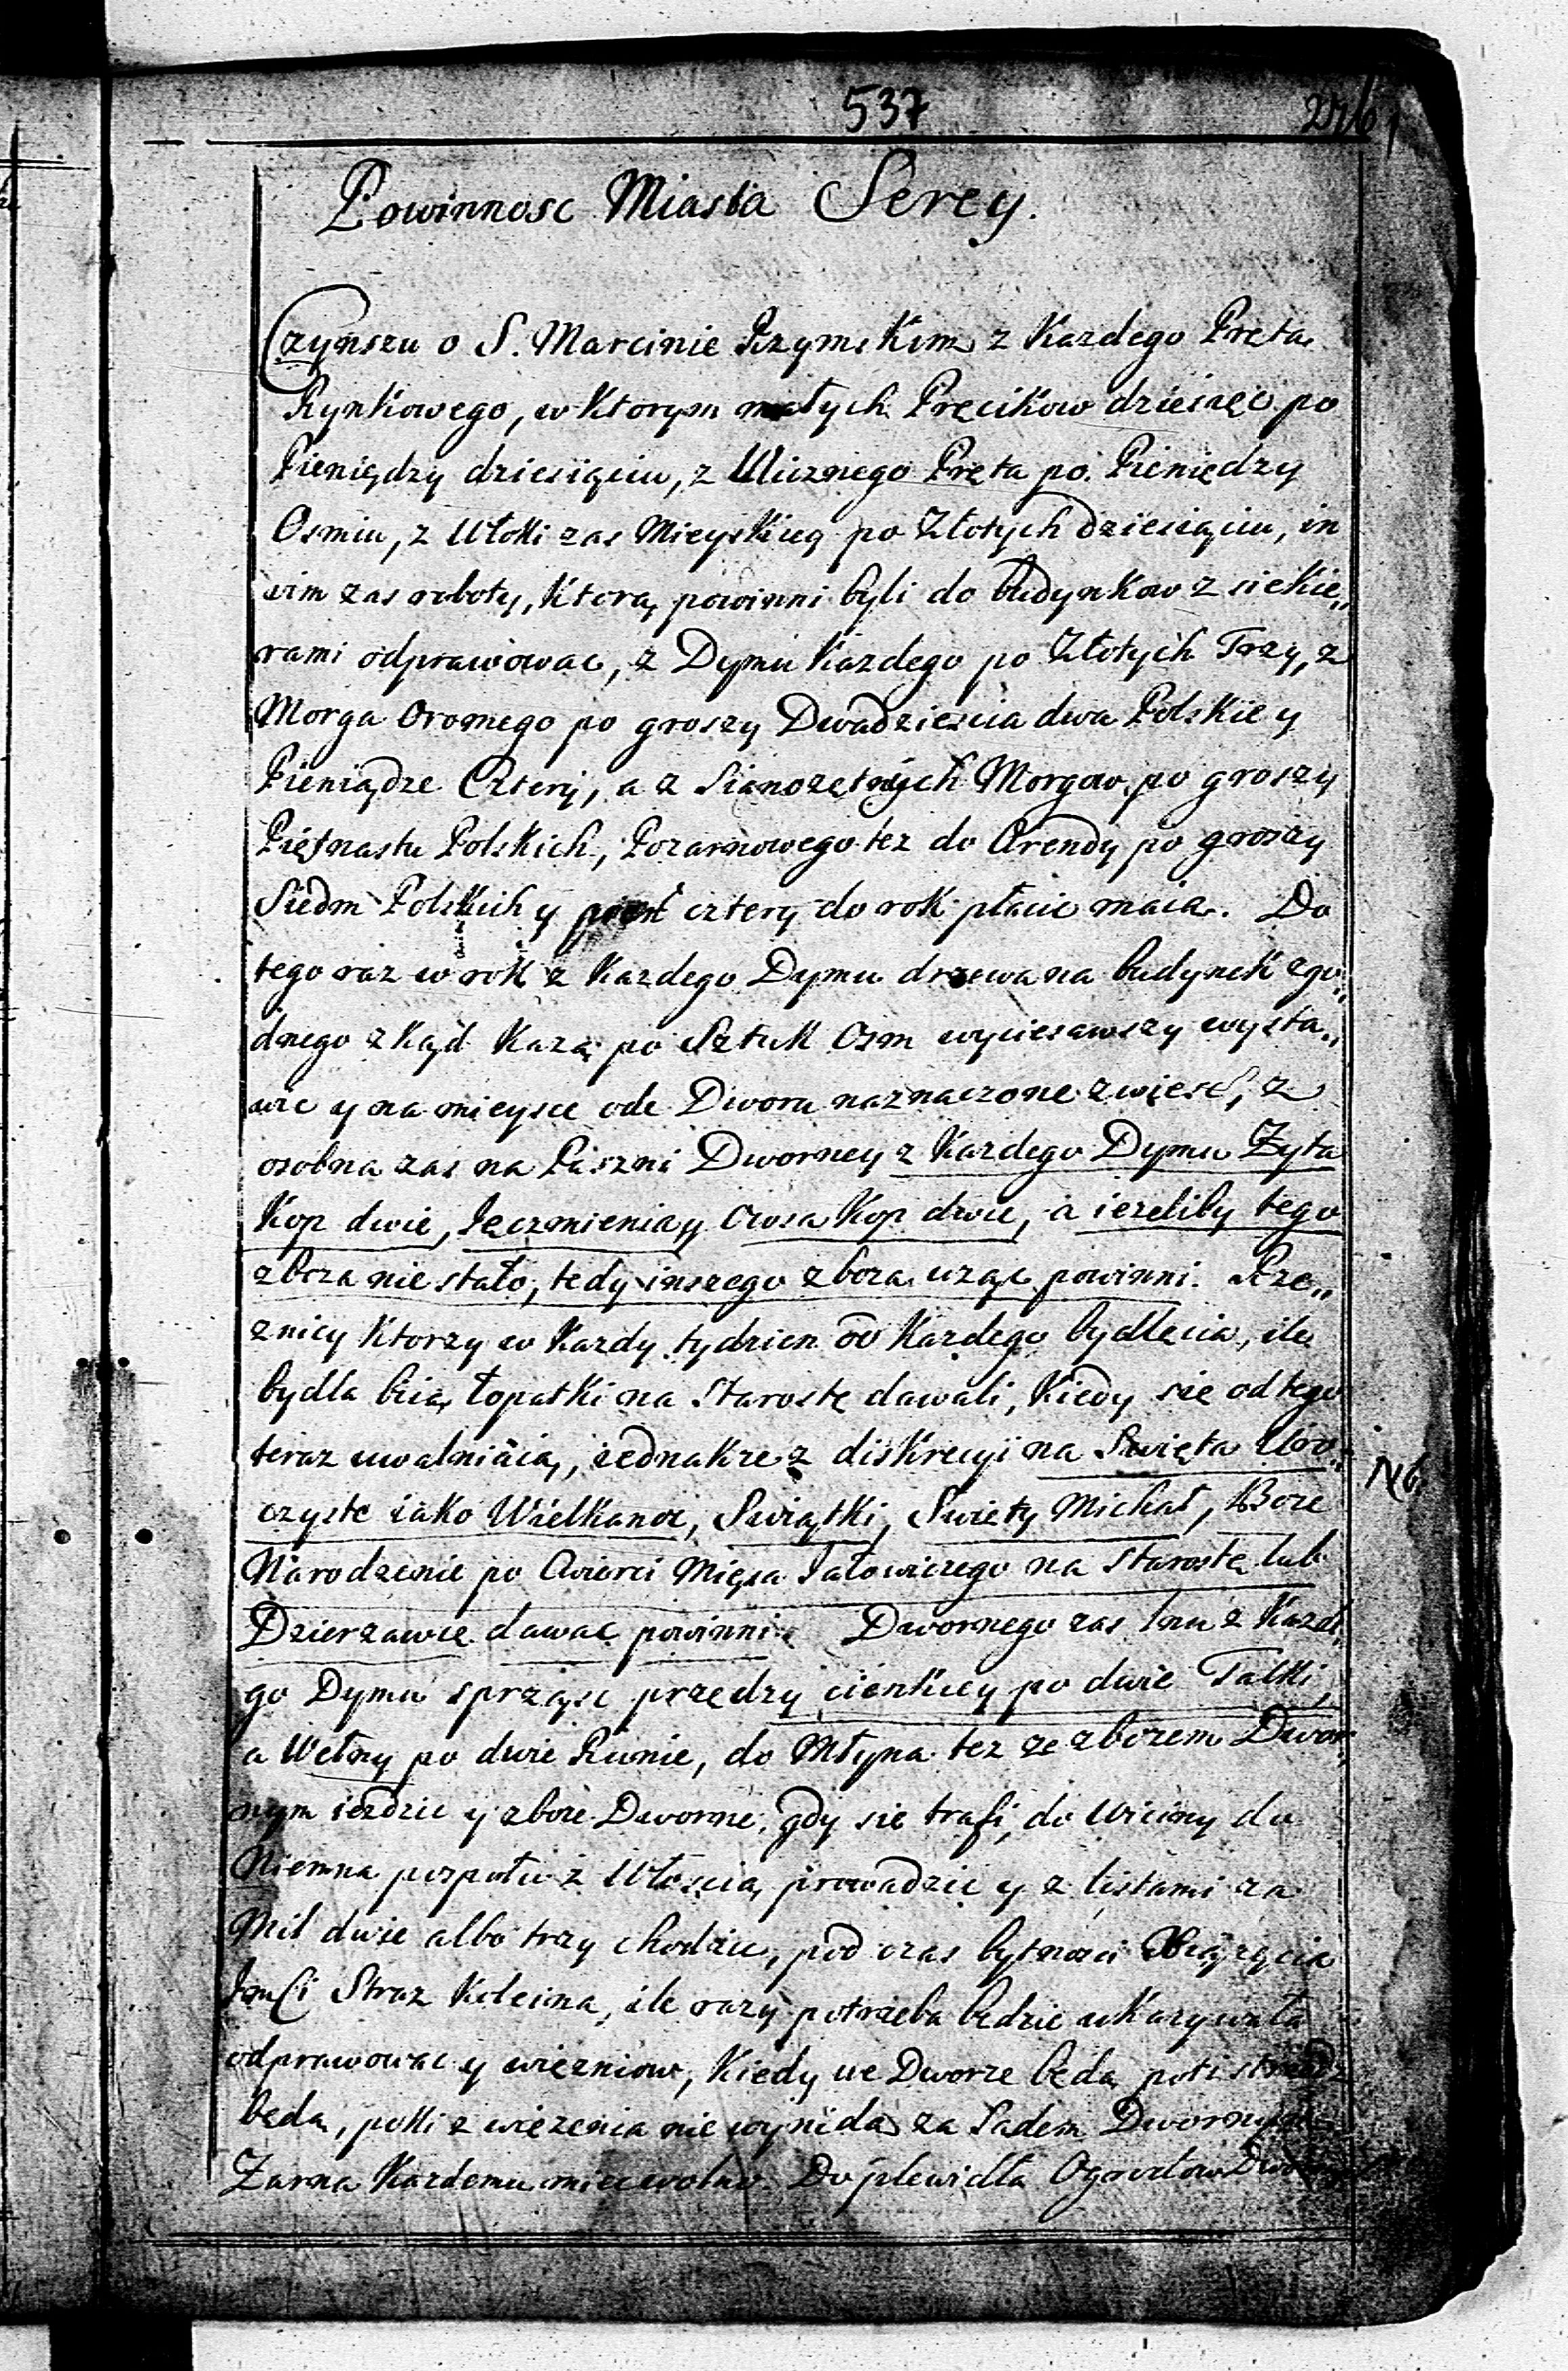 537
Powinnosc Miasta Serey.
Czynszu o S. Marcinie Rzymskim z Kazdego Pręta
Rynkowego, w Ktorym małych Pręcikow dziesięc po
Pieniędzy dziesiąciu, z Ulicznego Pręta po Pieniędzy
Osmiu, z Włoki zas Mieyskiey po Złotych dziesiąciu, in
vim zas roboty, Ktorą powinni byli do budynkow z siekie„
rami odprawowac, z Dymu Kazdego po Złotych Trzy, z
Morga Oromego po groszy Dwadziescia dwa Polskie y
Pieniądze Cztery, a z Sianozętnych Morgow po groszy
Piętnastu Polskich, Pozarnowego tez do Arendy po groszy
Siedm Polskich y cztery do rok płacic maią. Do
tego raz w rok z Kazdego Dymu drzewa na budynek zgo„
dnego zkąd Kazą po Sztuk Osm wyciesawszy wysta„
wic y na mieysce ode Dworu naznaczone zwiesc, z
osobna zas na Paszni Dworney z Kazdego Dymu Zyta
Kop dwie, Jęczmienia y Owsa Kop dwie, a iezeliby tego
zboza nie stało, tedy inszego zboza uząc powinni. Rze„
znicy Ktorzy w Kazdy tydzien od Kazdego bydlęcia, ile
bydla biią łopatki na Starostę dawali, Kiedy się od tego
teraz uwalniaią, iednakze z diskrecyi na Swięta Uro„
czyste iako Wielkanoc, Swiątki, Swięty Michał, Boze
NB.
Narodzenie po Cwierci Mięsa Jałowiczego na Starostę lub
Dzierzawcę dawac powinni. Dwornego zas lnu z Kazde
go Dymu sprząsc przędzy cienkiey po dwie Talki,
a Wełny po dwie Runie, do Młyna tez ze zbozem Dwor„
nym iezdzic y zboze Dworne, gdy się trafi, do Wiciny do
Niemna pospołu z Włoscią prowadzic y z listami za
Mil dwie albo trzy chodzic, pod czas bytnosci Xiązęcia
Jmsci Straz Koleina, ile razy potrzeba będzie ukazywała
odprawowac y więzniow, Kiedy we Dworze będą poti strzedz
będą, poki z więzenia nie wynidą za Sądem Dwornym
Zarna Kazdemu miec wolno. Do plewidła Ogrodow